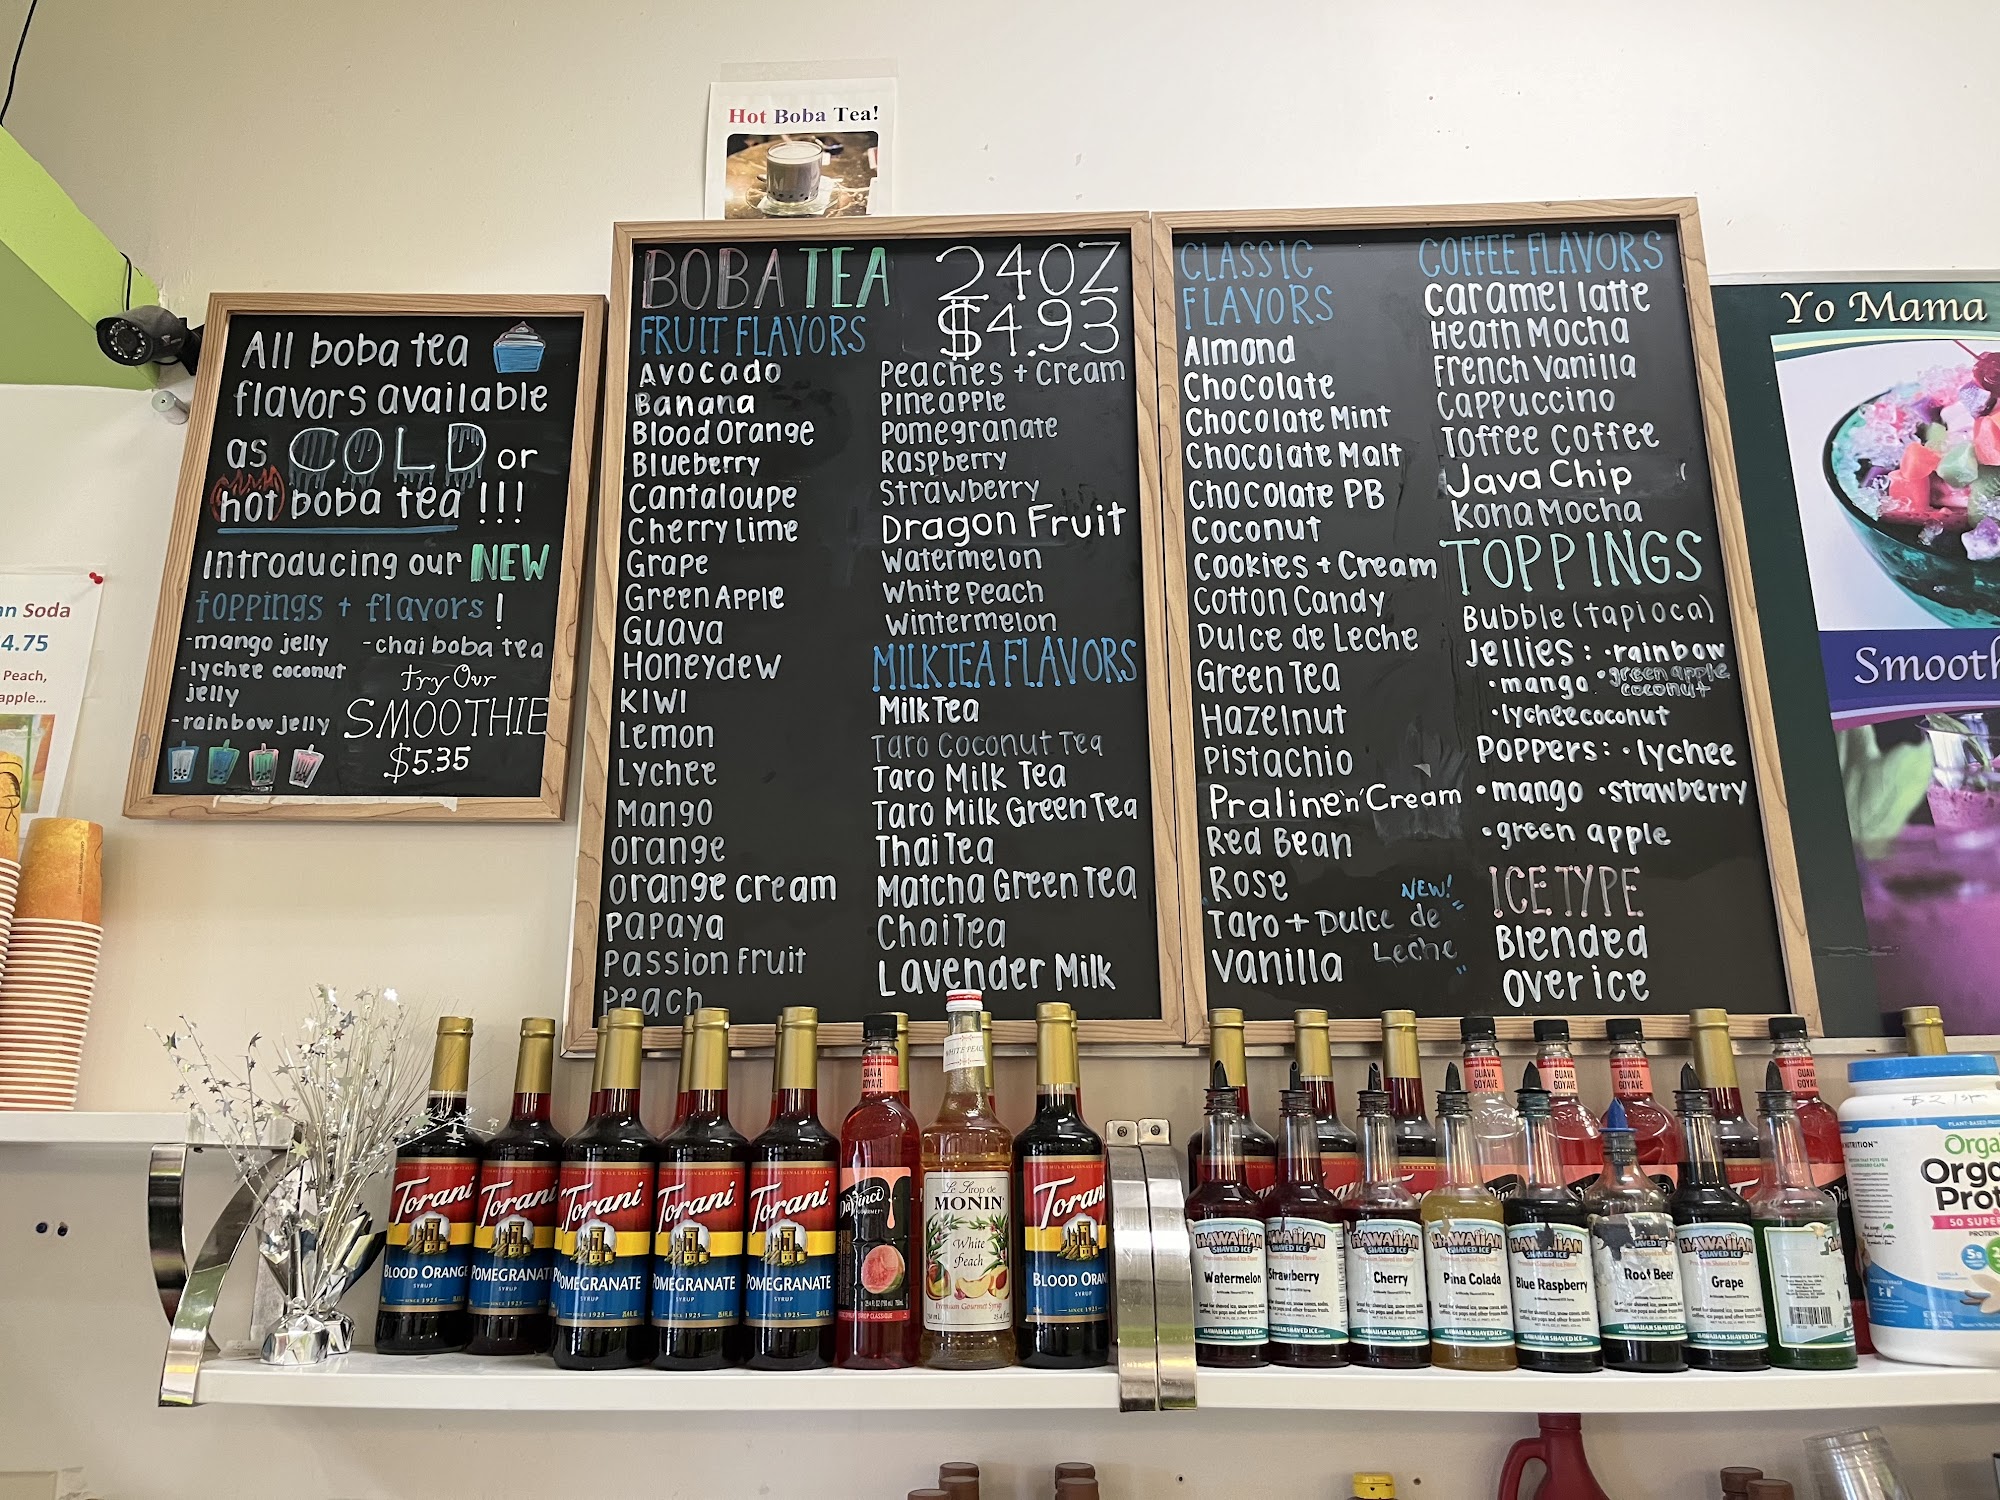 Hot Boba Tea!
All boba tea
flavors available
as COLD or
hot boba tea!!!
Introducing our NEW
toppings + flavors!
-mango jelly
-lychee coconut
jelly
-rainbow jelly
-chai boba tea
try our
SMOOTHIE
$5.35
an Soda
4.75
Peach,
apple...
BOBA TEA
24OZ
$4.93
FRUIT FLAVORS
Avocado
Banana
Blood Orange
Blueberry
Cantaloupe
Cherry Lime
Grape
Green Apple
Guava
Honeydew
Kiwi
Lemon
Lychee
Mango
Orange
Orange Cream
Papaya
Passion Fruit
Peach
Peaches + Cream
Pineapple
Pomegranate
Raspberry
Strawberry
Dragon Fruit
Watermelon
White Peach
Wintermelon
MILK TEA FLAVORS
Milk Tea
Taro Coconut Tea
Taro Milk Tea
Taro Milk Green Tea
Thai Tea
Matcha Green Tea
Chai Tea
Lavender Milk
CLASSIC
FLAVORS
Almond
Chocolate
Chocolate Mint
Chocolate Malt
Chocolate PB
Coconut
Cookies + Cream
Cotton Candy
Dulce de Leche
Green Tea
Hazelnut
Pistachio
Praline 'n' Cream
Red Bean
Rose
NEW!
Taro + "Dulce de
Leche"
Vanilla
COFFEE FLAVORS
Caramel latte
Heath Mocha
French Vanilla
Cappuccino
Toffee Coffee
Java Chip
Kona Mocha
TOPPINGS
Bubble (tapioca)
Jellies: •rainbow
•mango •green apple
coconut
•lychee coconut
Poppers: •lychee
•mango •strawberry
•green apple
ICE TYPE
Blended
Over ice
Yo Mama
Smooth
WHITE PEACH
GUAVA
GOYAVE
GUAVA
GOYAVE
GUAVA
GOYAVE
GUAVA
GOYAVE
GUAVA
GOYAVE
Torani
BLOOD ORANGE
SYRUP
SINCE 1925
Torani
POMEGRANATE
SYRUP
Torani
POMEGRANATE
SYRUP
SINCE 1925
Torani
POMEGRANATE
SYRUP
SINCE 1925
Torani
POMEGRANATE
SYRUP
SINCE 1925
DaVinci
GOURMET
Le Sirop de
MONIN
White
Peach
Premium Gourmet Syrup
Torani
BLOOD ORAN
SYRUP
SINCE 1925
HAWAIIAN
SHAVED ICE
Watermelon
HAWAIIAN
SHAVED ICE
Strawberry
HAWAIIAN
SHAVED ICE
Cherry
HAWAIIAN
SHAVED ICE
Pina Colada
HAWAIIAN
SHAVED ICE
Blue Raspberry
SHAVED ICE
Root Beer
HAWAIIAN
SHAVED ICE
Grape
NUTRITION
PLANT-BASED
Orga
Orga
Prot
50 SUPER
PROTEIN